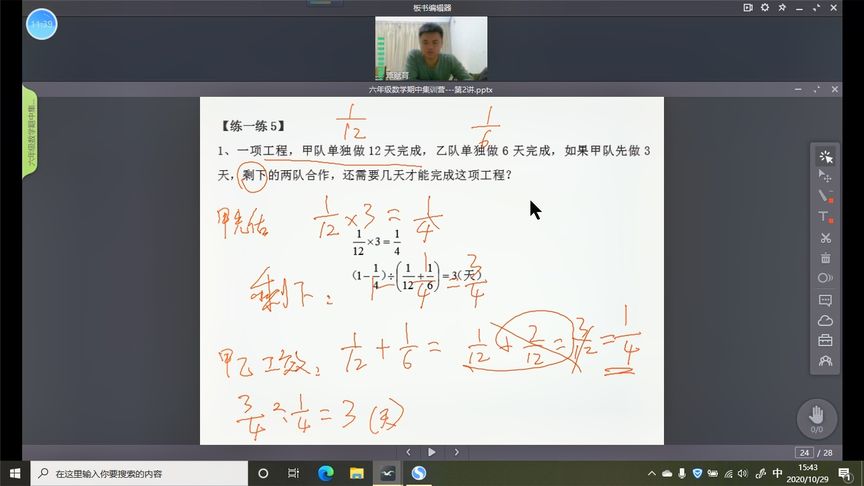 板书编辑器
11:39
六年级数学期中集训营---第2讲.pptx
六年级数学期中集...
【练一练 5】
1/12
1/6
1、一项工程，甲队单独做 12 天完成，乙队单独做 6 天完成，如果甲队先做 3
天，剩下的两队合作，还需要几天才能完成这项工程？
1/12×3=1/4
1/12×3=1/4
(1-1/4)÷(1/12+1/6)=3(天)
剩下： 1-1/4=3/4
甲乙工效： 1/12+1/6= 1/12+2/12=3/12=1/4
3/4÷1/4=3(天)
0/0
24 / 28
在这里输入你要搜索的内容
中
15:43
2020/10/29
1